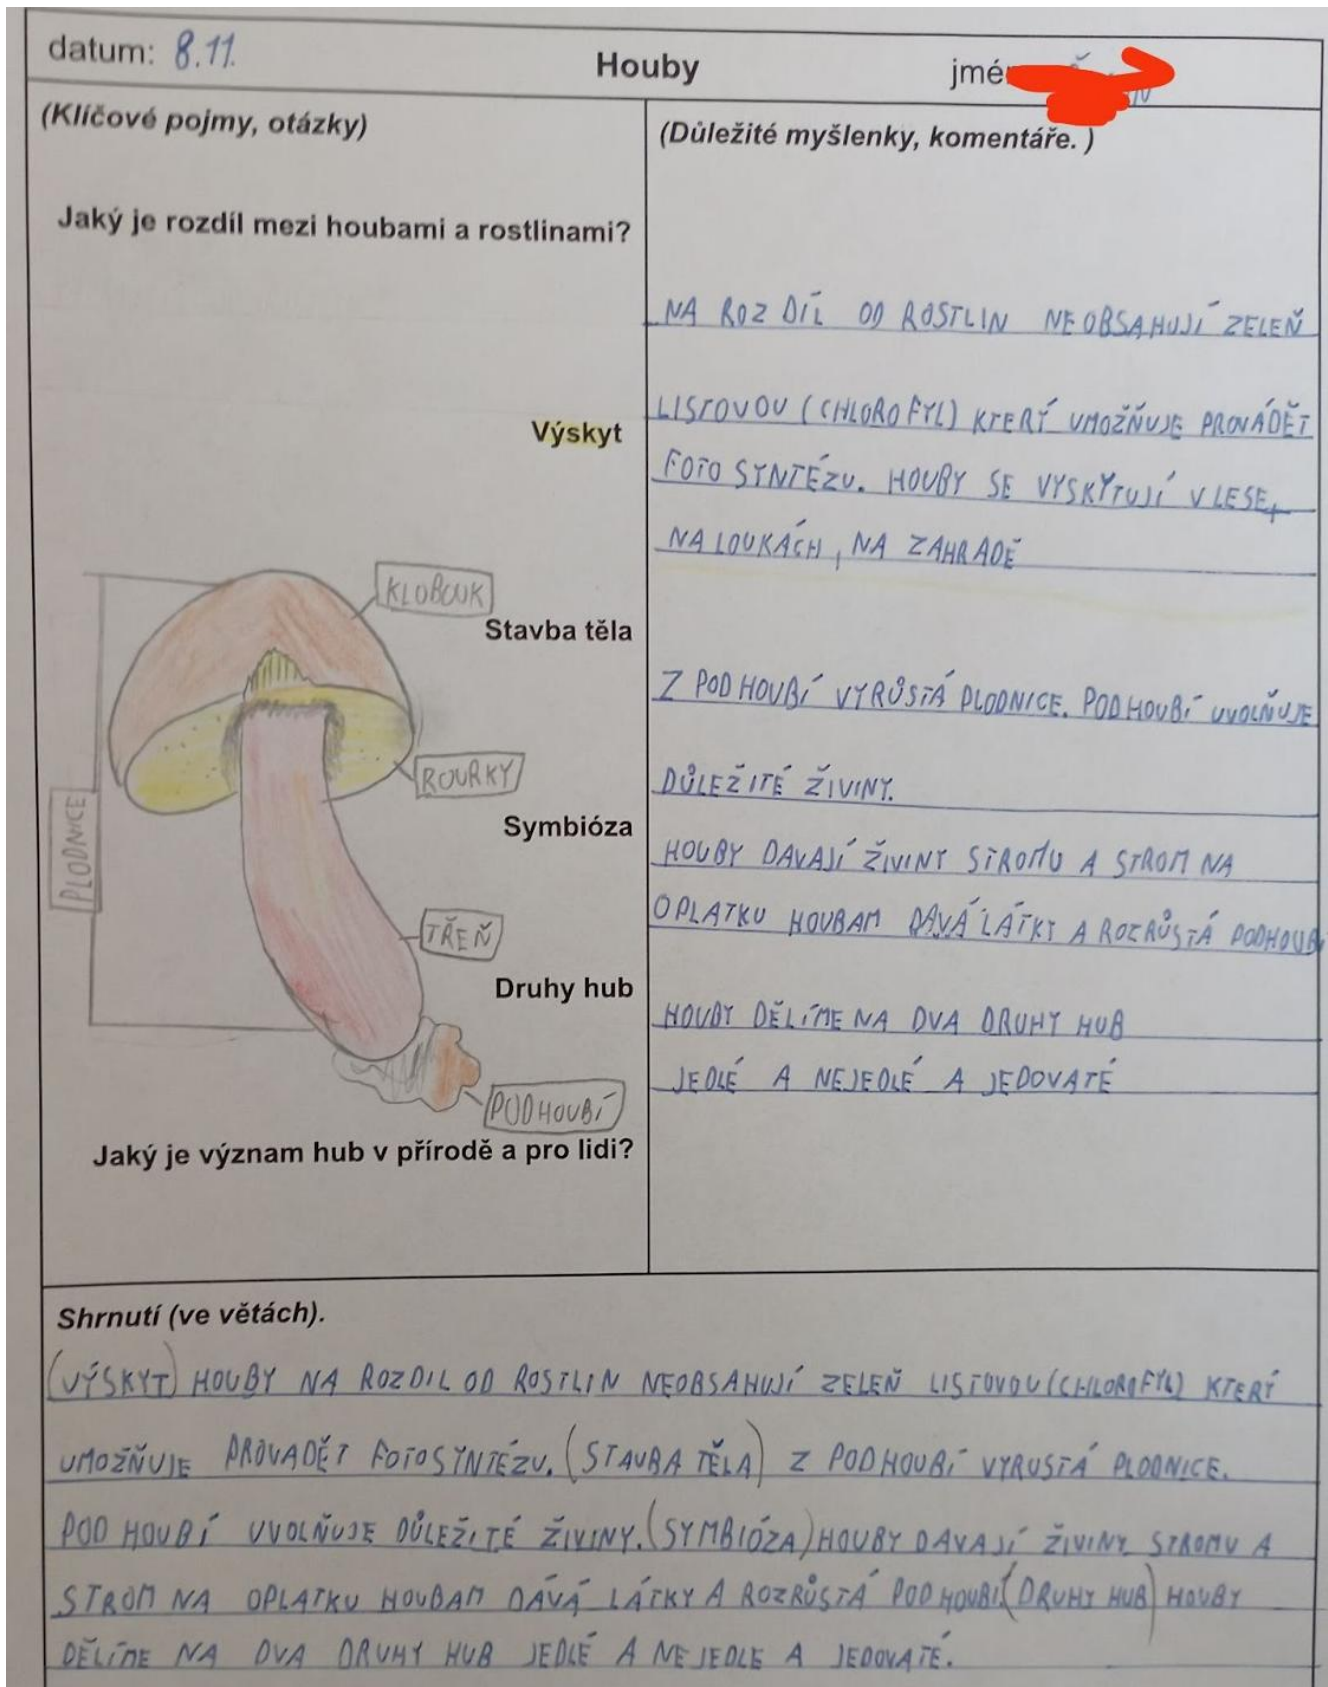 datum: 8.11.
Houby
jmé
(Klíčové pojmy, otázky)
Jaký je rozdíl mezi houbami a rostlinami?
Výskyt
KLOBOUK
Stavba těla
ROURKY
PLODNICE
Symbióza
TŘEŇ
Druhy hub
PODHOUBÍ
Jaký je význam hub v přírodě a pro lidi?
(Důležité myšlenky, komentáře. )
NA ROZDÍL OD ROSTLIN NEOBSAHUJÍ ZELEŇ
LISTOVOU (CHLOROFYL) KTERÝ UMOŽŇUJE PROVÁDĚT
FOTOSYNTÉZU. HOUBY SE VYSKÝTUJÍ V LESE,
NA LOUKÁCH, NA ZAHRADĚ
Z PODHOUBÍ VYRŮSTÁ PLODNICE. PODHOUBÍ UVOLŇUJE
DŮLEŽITÉ ŽIVINY.
HOUBY DAVAJÍ ŽIVINY STROMU A STROM NA
OPLATKU HOUBAM DAVÁ LÁTKY A ROZRŮSTÁ PODHOUB
HOUBY DĚLÍME NA DVA DRUHY HUB
JEDLÉ A NEJEDLÉ A JEDOVATÉ
Shrnutí (ve větách).
(VÝSKYT) HOUBY NA ROZDIL OD ROSTLIN NEOBSAHUJÍ ZELEŇ LISTOVOU (CHLOROFYL) KTERÝ
UMOŽŇUJE PROVADĚT FOTOSYNTÉZU. (STAVBA TĚLA) Z PODHOUBÍ VYRUSTÁ PLODNICE.
PODHOUBÍ UVOLŇUJE DŮLEŽITÉ ŽIVINY. (SYMBIÓZA) HOUBY DAVAJÍ ŽIVINY STROMU A
STROM NA OPLATKU HOUBAM DÁVÁ LÁTKY A ROZRŮSTÁ PODHOUBÍ. (DRUHY HUB) HOUBY
DĚLÍME NA DVA DRUHY HUB JEDLÉ A NEJEDLE A JEDOVATÉ.